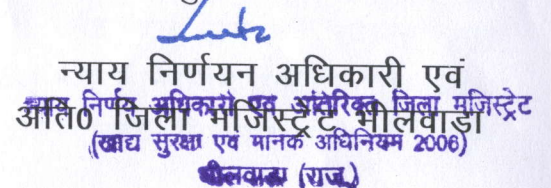 न्याय निर्णयन अधिकारी एवं
अति0 जिला मजिस्ट्रेट भीलवाडा
न्याय निर्णय अधिकारी एवं अतिरिक्त जिला मजिस्ट्रेट
(खाद्य सुरक्षा एवं मानक अधिनियम 2006)
भीलवाडा (राज.)